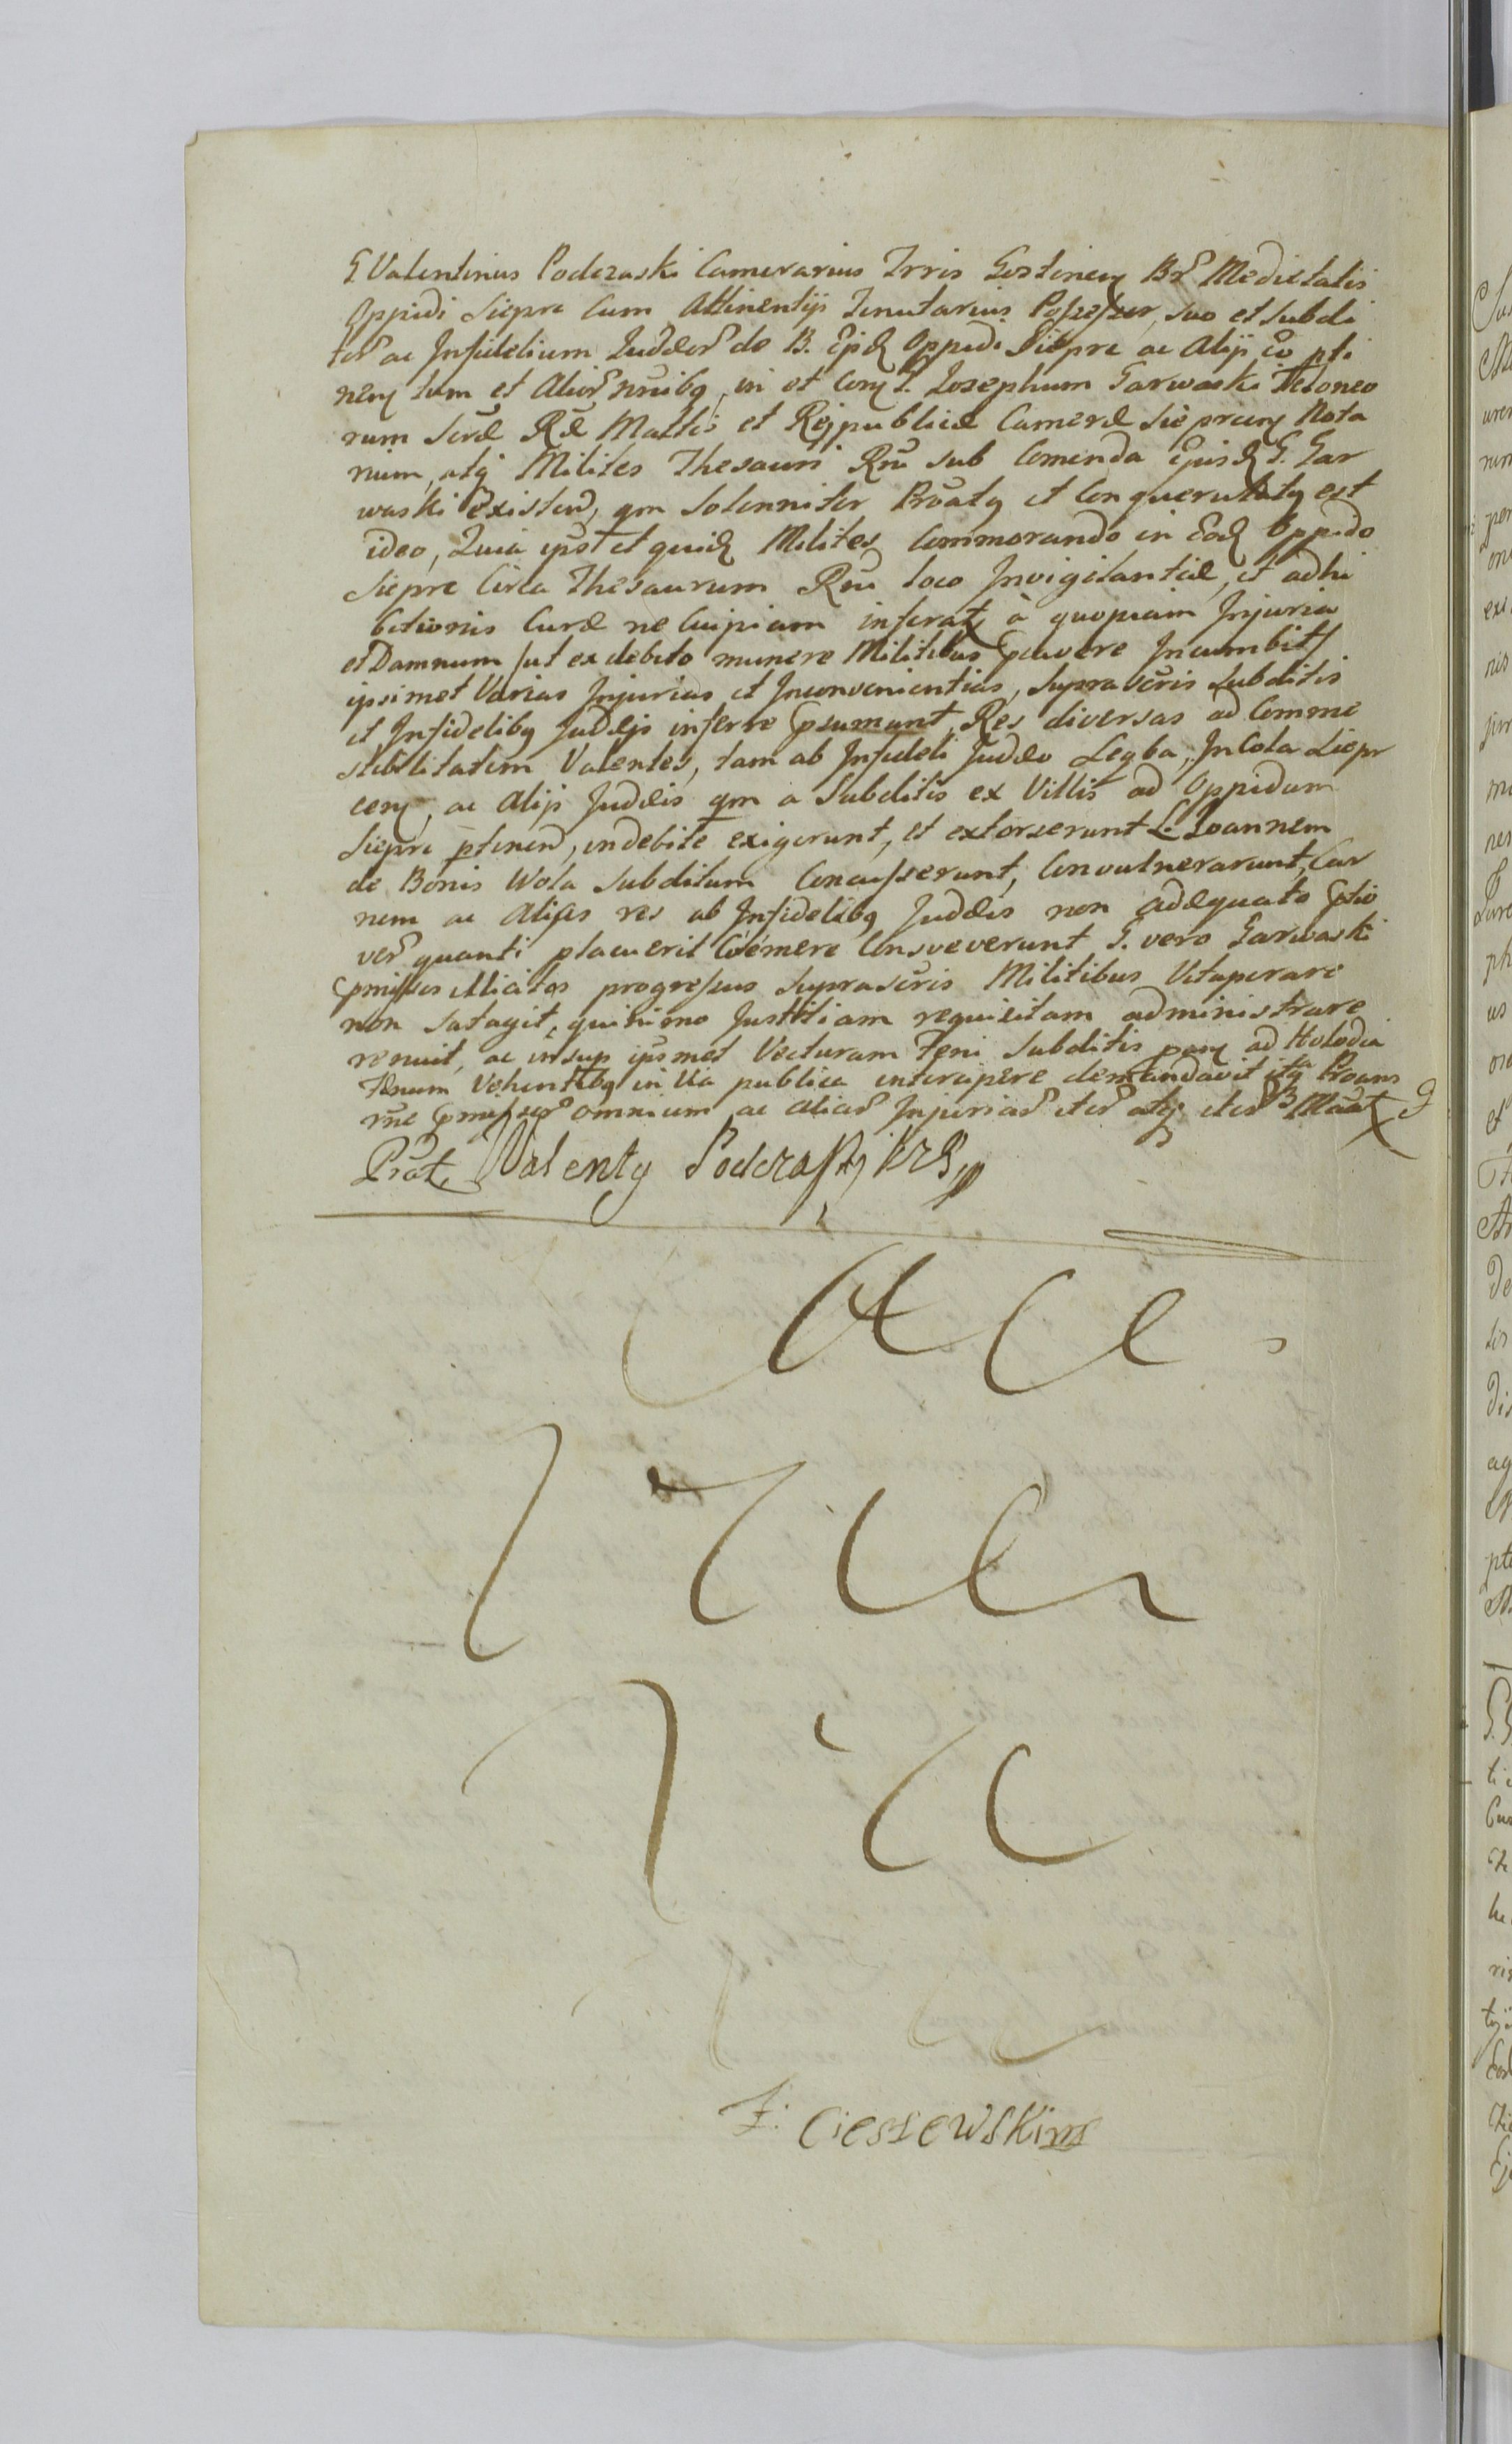 G. Valentinus Podczaski Camerarius Trris Gostinen Br. Medietatis
Oppidi Siepre Cum Attinentijs Tenutarius Possessor, suo et Subdi
tor ac Infidelium Judæor de B. Ejusd Oppidi Siepre ac Alijs eo pti
nen tum et Alior nnibq, in et Con G. Josephum Garwaski Teloneo
rum Scræ Ræ Mattis et Rejpublicæ Cameræ Sieprcen Nota
rium, atq Milites Thesauri Rni sub Comenda Ejusd G. Gar
waski Existen, qm Solenniter Proatq et Conquerulatq est
ideo, Quia ipst et quid Milites Commorando in Eod Oppido
Siepre Circa Thesaurum Rni loco Invigilantiæ, et adhi
bitionis Curæ ne Cuipiam inferat à quopiam Injuria
et Damnum /ut ex debito munere Militibus pcavere Incumbit/
ipsimet Varias Injurias et Inconvenientias, Suprascris Subditis
et Infidelibq Judæjs inferre psumunt, Res diversas ad Comme
stibilitatem Valentes, tam ab Infideli Judæo Legba, Incola Siepr
cen, ac Alijs Judæis qm a Subditis ex Villis ad Oppidum
Siepre ptinen, indebite exigerunt, et extorserunt L. Joannem
de Bonis Wola Subditum Concusserunt, Convulnerarunt, Car
nem ac Alias res ab Infidelibq Judæis non adæquato ptio
ver quanti placuerit Coëmere Consveverunt G. vero Garwaski
pmissos illicitos progressus Suprascris Militibus Vituperare
non satagit, quinimo Justitiam requisitam administrare
renuit, ac insup ipsmet Vecturam Feni Subditis pan ad Holodia
Fænum Vehentibq in Via publica interapere demandavit itq Proans
rne pmissor omnium ac aliar Injuriar iter atq iter Maat
Prot. Valenty Podczaski KZG
F. Ciessewski